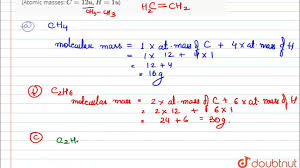 (Atomic masses: C = 12u, H = 1u)
CH₃ - CH₃
H₂C = CH₂
(a) CH₄
molecular mass = 1 x at. mass of C + 4 x at. mass of H
= 1 x 12 + 4 x 1
= 12 + 4
= 16g
(b) C₂H₆
molecular mass = 2 x at. mass of C + 6 x at. mass of H
= 2 x 12 + 6 x 1
= 24 + 6 = 30g.
(c) C₂H
doubtnut